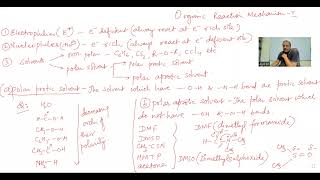 Organic Reaction Mechanism-I
① Electrophiles (E⊕) - e⁻ deficient (always react at e⁻ rich site)
② Nucleophiles (Nu⊖) - e⁻ rich (always react at e⁻ deficient site)
③ Solvents
Non polar - C₆H₆, CS₂, R-O-R, CCl₄ etc
polar
polar protic solvent
polar aprotic solvent
(a) polar protic solvent - The solvent which have -O-H & -N-H bond are protic solvent
H₂O
decreasing order of their polarity
CH₃-O-H
NH₂-H
(b) Polar aprotic solvent - The polar solvent which do not have -OH & -NH bonds.
DMF
DMSO
CH₃-CN
HMTP
acetone
DMF (dimethyl formamide)
DMSO (Dimethyl sulphoxide)
CH₃
S=O
CH₃